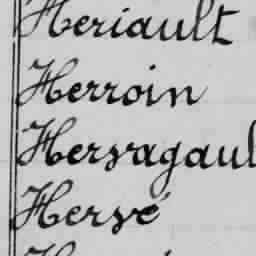 Heriault
Herroin
Hervagaul
Hervé